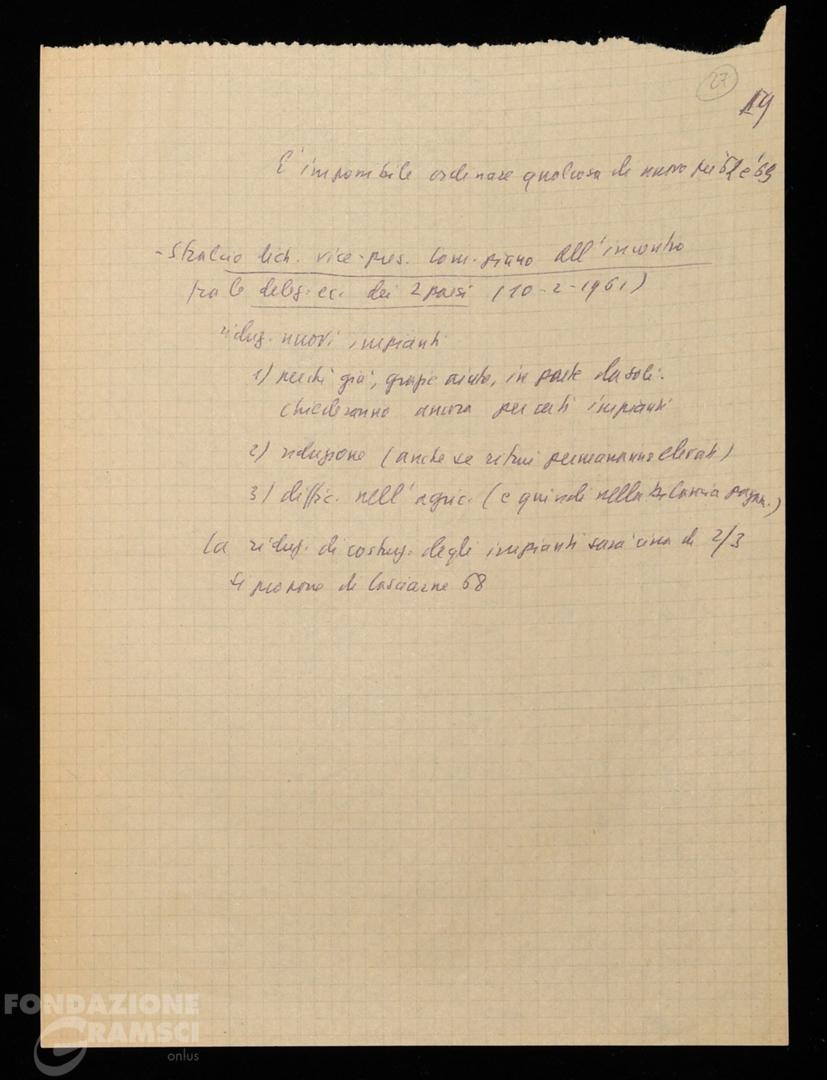 27
19
E' impossibile ordinare qualcosa di nuovo per '62 e '63
- Stralcio dich. vice-pres. Com. piano all'incontro
tra le deleg. ec. dei 2 paesi (10-2-1961)
riduz. nuovi impianti
1) perché già, grazie aiuto, in parte da soli.
chiederanno ancora per certi impianti
2) riduzione (anche se ritmi permarranno elevati)
3) diffic. nell'agric. (e quindi nella bilancia pagam.)
La riduz. di costruz. degli impianti sarà circa di 2/3
Si propone di lasciarne 68
FONDAZIONE
GRAMSCI
onlus